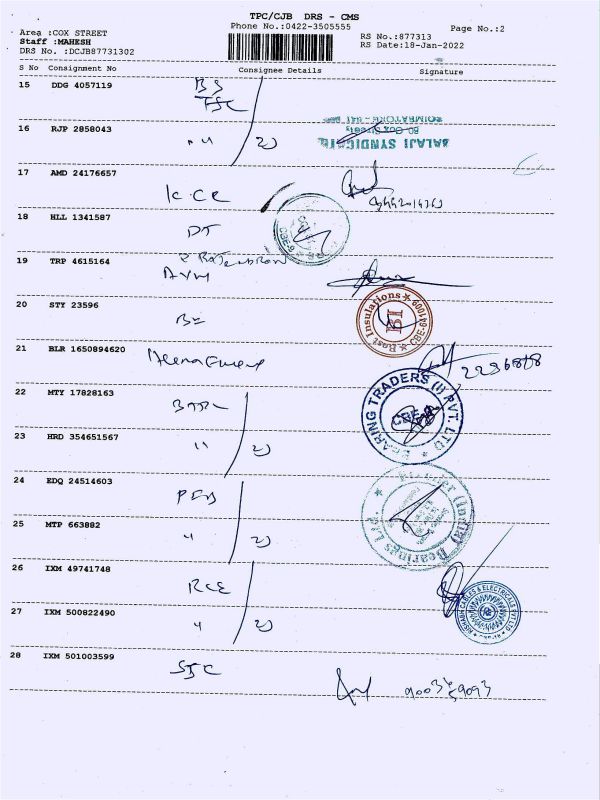 TPC/CJB DRS - CMS
Area :COX STREET
Phone No.:0422-3505555
Page No.:2
Staff :MAHESH
RS No.:877313
DRS No. :DCJB87731302
RS Date:18-Jan-2022
S No Consignment No Consignee Details Signature
15 DDG 4057119
16 RJP 2858043
BALAJI SYNDICATE
17 AMD 24176657
K.CR
18 HLL 1341587
DT
CBE-9
19 TRP 4615164
20 STY 23596
BE
East Insulations BI CBE-641009
21 BLR 1650894620
22 MTY 17828163
BEARING TRADERS (I) PVT. LTD
CBE-9
23 HRD 354651567
"
24 EDQ 24514603
PEB
(India) Bearings
25 MTP 663882
"
26 IXM 49741748
RCE
27 IXM 500822490
"
CABLES & ELECTRICALS PVT LTD
28 IXM 501003599
SJC